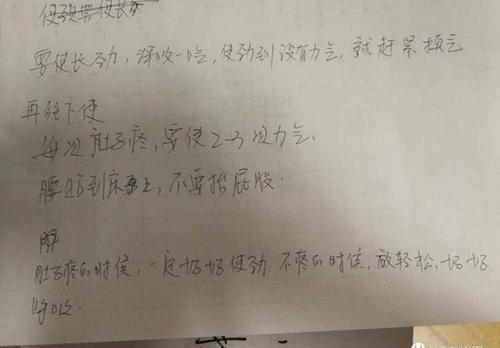 使劲要使长劲
要使长劲，深吸一口气，使劲到没有力气，就赶紧换气
再往下使
每次肚子疼，要使2-3次力气、
腰贴到床上，不要抬屁股.
肚子疼的时候，一定好好使劲.不疼的时候，放轻松、好好
呼吸.